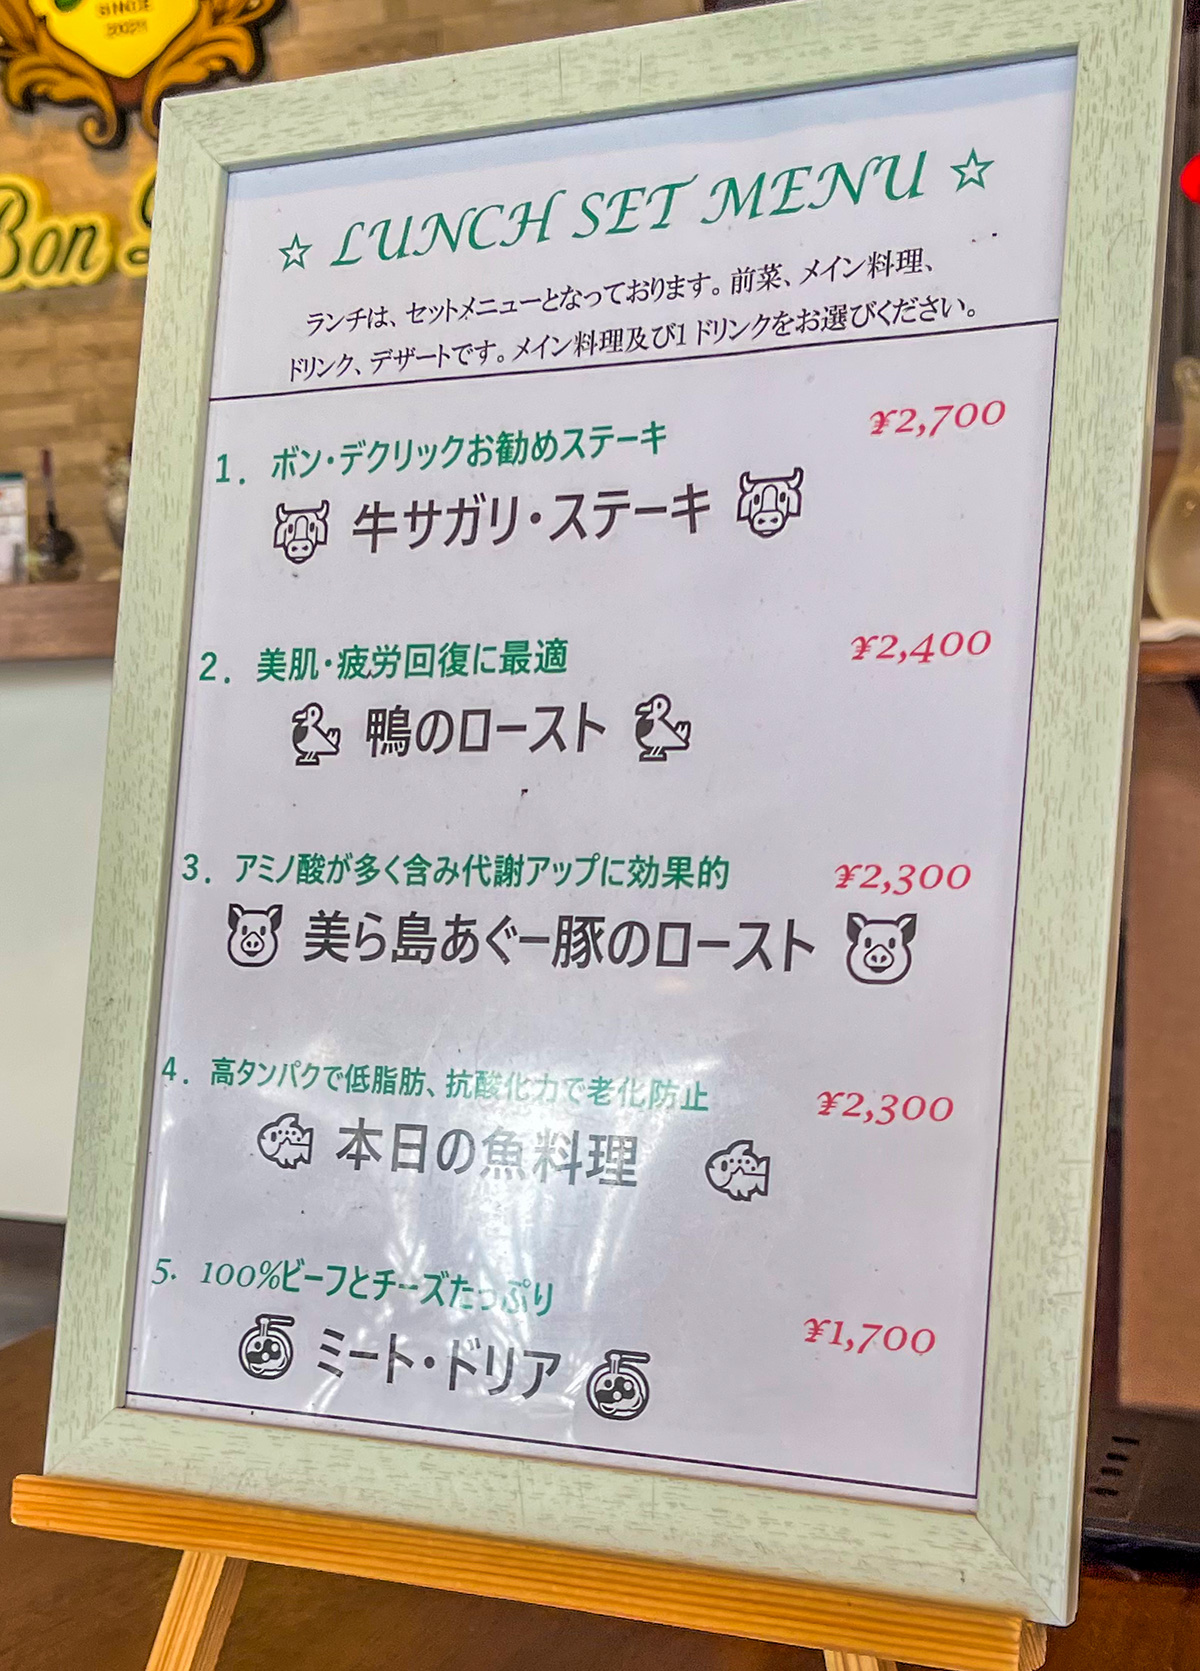 SINCE
Bon
☆ LUNCH SET MENU ☆
ランチは、セットメニューとなっております。前菜、メイン料理、
ドリンク、デザートです。メイン料理及び1ドリンクをお選びください。
1. ボン・デクリックお勧めステーキ ¥2,700
牛サガリ・ステーキ
2. 美肌・疲労回復に最適 ¥2,400
鴨のロースト
3. アミノ酸が多く含み代謝アップに効果的 ¥2,300
美ら島あぐー豚のロースト
4. 高タンパクで低脂肪、抗酸化力で老化防止 ¥2,300
本日の魚料理
5. 100%ビーフとチーズたっぷり ¥1,700
ミート・ドリア